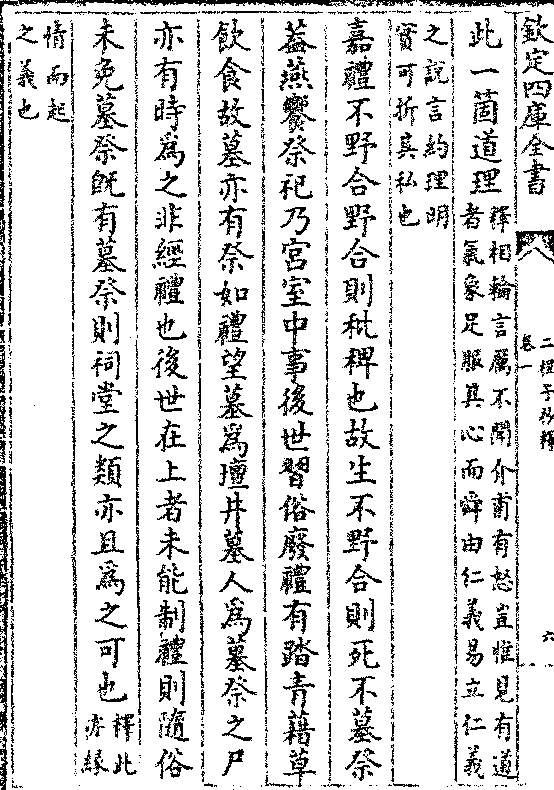 欽定四庫全書
二程子抄釋
卷一
六
此一箇道理釋相輪言厲不聞介甫有怒豈惟見有道
者氣象足服其心而舜由仁義易立仁義
之說言約理明
實可折其私也
嘉禮不野合野合則秕稗也故生不野合則死不墓祭
蓋燕饗祭祀乃宮室中事後世習俗廢禮有踏青藉草
飲食故墓亦有祭如禮望墓爲壇井墓人爲墓祭之尸
亦有時爲之非經禮也後世在上者未能制禮則隨俗
未免墓祭既有墓祭則祠堂之類亦且爲之可也釋此
亦緣
情而起
之義也